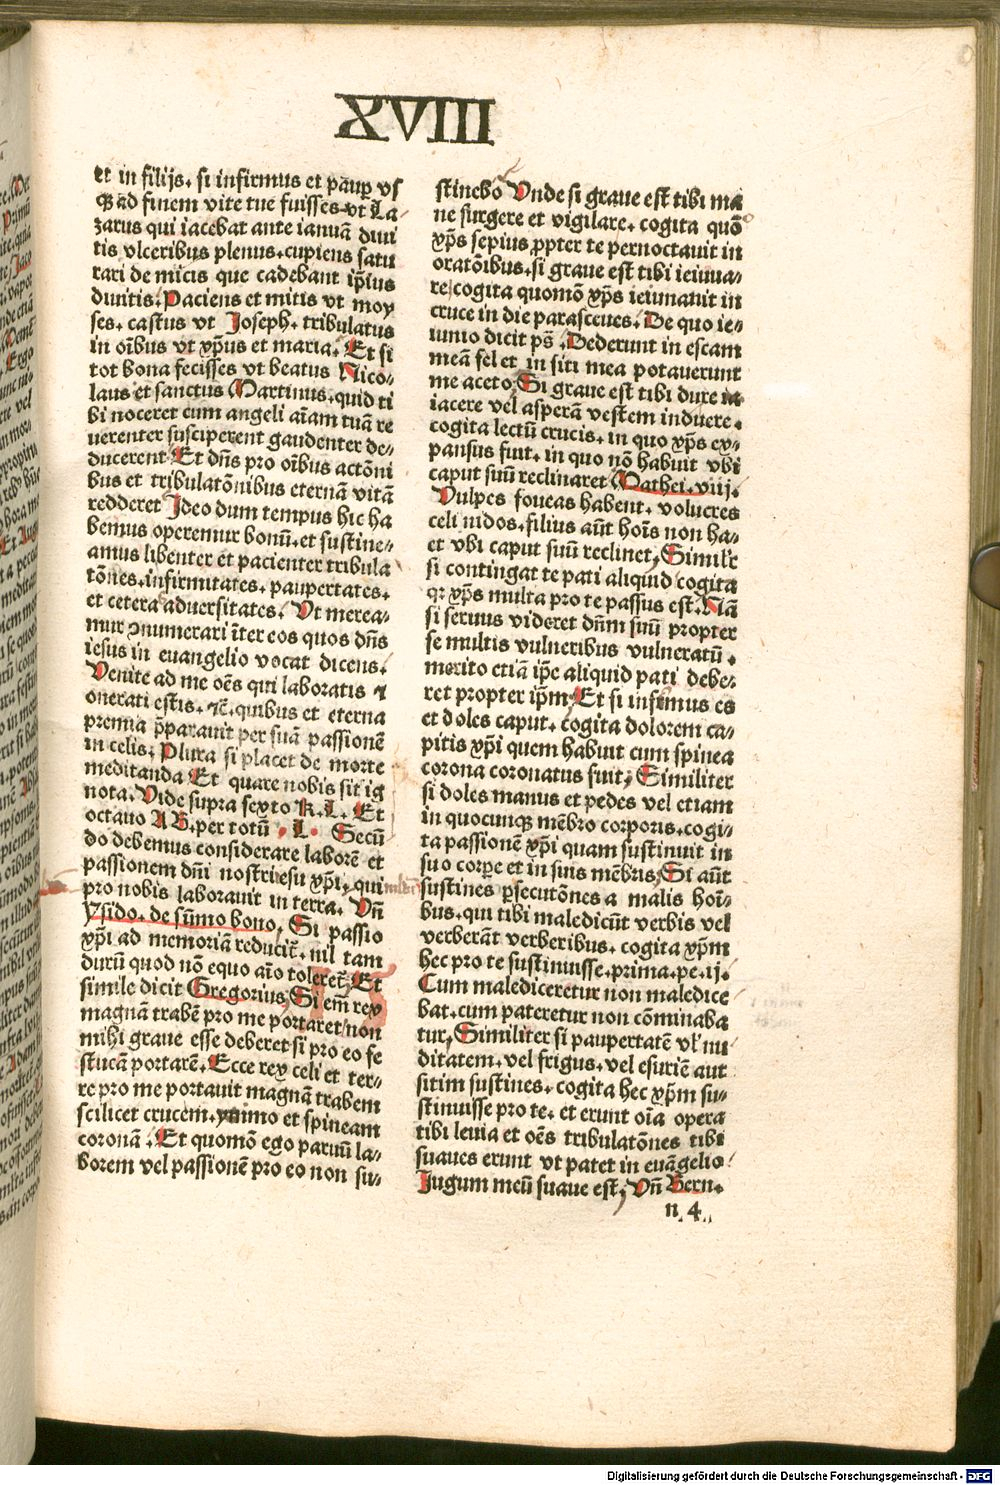 XVIII
et in filijs. si infirmus et paup̱ vsqꝫ
ad finem vite tue fuisses vt La-
zarus qui iacebat ante ianuā diui
tis vlceribus plenus. cupiens satu
rari de micis que cadebant ip̄ius
diuitis. Paciens et mitis vt moy
ses. castus vt Joseph. tribulatus
in oībus vt xp̄us et maria. Et si
tot bona fecisses vt beatus Nico-
laus et sanctus Martinus. quid ti
bi noceret cum angeli aīam tuā re
uerenter susciperent gaudenter de-
ducerent Et dn̄s pro oībus actōni
bus et tribulatōnibus eternā vitā
redderet Ideo dum tempus hic ha
bemus operemur bonū. et sustine-
amus libenter et pacienter tribula
tōnes. infirmitates. paupertates.
et cetera aduersitates. Vt merea-
mur ꝯnumerari īter eos quos dn̄s
iesus in euangelio vocat dicens.
Venite ad me oēs qui laboratis ⁊
onerati estis. ⁊c̄. quibus et eterna
premia p̄parauit per suā passionē
in celis. Plura si placet de morte
meditanda Et quare nobis sit ig
nota. Vide supra sexto K. L. Et
octauo A B. per totū . L . Secū
do debemus considerare laborē et
passionem dn̄i nostri iesu xp̄i. qui
pro nobis laborauit in terra. Vn̄
Ysido. de sūmo bono. Si passio
xp̄i ad memoriā reducit̄. nil tam
durū quod nō equo aīo toleret̄. Et
simile dicit Gregorius, Si em̄ rex
magnā trabē pro me portaret/non
mihi graue esse deberet si pro eo fe
stucā portarē. Ecce rex celi et ter-
re pro me portauit magnā trabem
scilicet crucem. ymmo et spineam
coronā. Et quomō ego paruū la-
borem vel passionē pro eo non su-
stinebo Vnde si graue est tibi ma
ne surgere et vigilare. cogita quō
xp̄s sepius ꝓpter te pernoctauit in
oratōibus. si graue est tibi ieiuna-
re cogita quomō xp̄s ieiunauit in
cruce in die parasceues. De quo ie-
iunio dicit ps̄. Dederunt in escam
meā fel et in siti mea potauerunt
me aceto. Si graue est tibi dure
iacere vel asperā vestem induere.
cogita lectū crucis. in quo xp̄s ex-
pansus fuit. in quo nō habuit vbi
caput suū reclinaret Mathei. viij.
Vulpes foueas habent. volucres
celi nidos. filius aūt hoīs non ha-
et vbi caput suū reclinet, Simil'r
si contingat te pati aliquid cogita
qꝛ xp̄s multa pro te passus est. Nā
si seruus videret dn̄m suū propter
se multis vulneribus vulneratū.
merito etiā ip̄e aliquid pati debe-
ret propter ip̄m, Et si infirmus es
et doles caput. cogita dolorem ca-
pitis xp̄i quem habuit cum spinea
corona coronatus fuit, Similiter
si doles manus et pedes vel etiam
in quocunqꝫ mēbro corporis. cogi-
ta passionē xp̄i quam sustinuit in
suo corpe et in suis mēbris, Si aūt
sustines ꝑsecutōnes a malis hoī-
bus. qui tibi maledicūt verbis vel
verberāt verberibus. cogita xp̄m
hec pro te sustinuisse. prima. pe. ij.
Cum malediceretur non maledice
bat. cum pateretur non cōminaba
tur, Similiter si paupertatē vl' nu
ditatem. vel frigus. vel esuriē aut
sitim sustines. cogita hec xp̄m su-
stinuisse pro te. et erunt oīa opera
tibi leuia et oēs tribulatōnes tibi
suaues erunt vt patet in euāgelio
Jugum meū suaue est, Vn̄ Bern.
n 4
Digitalisierung gefördert durch die Deutsche Forschungsgemeinschaft - DFG